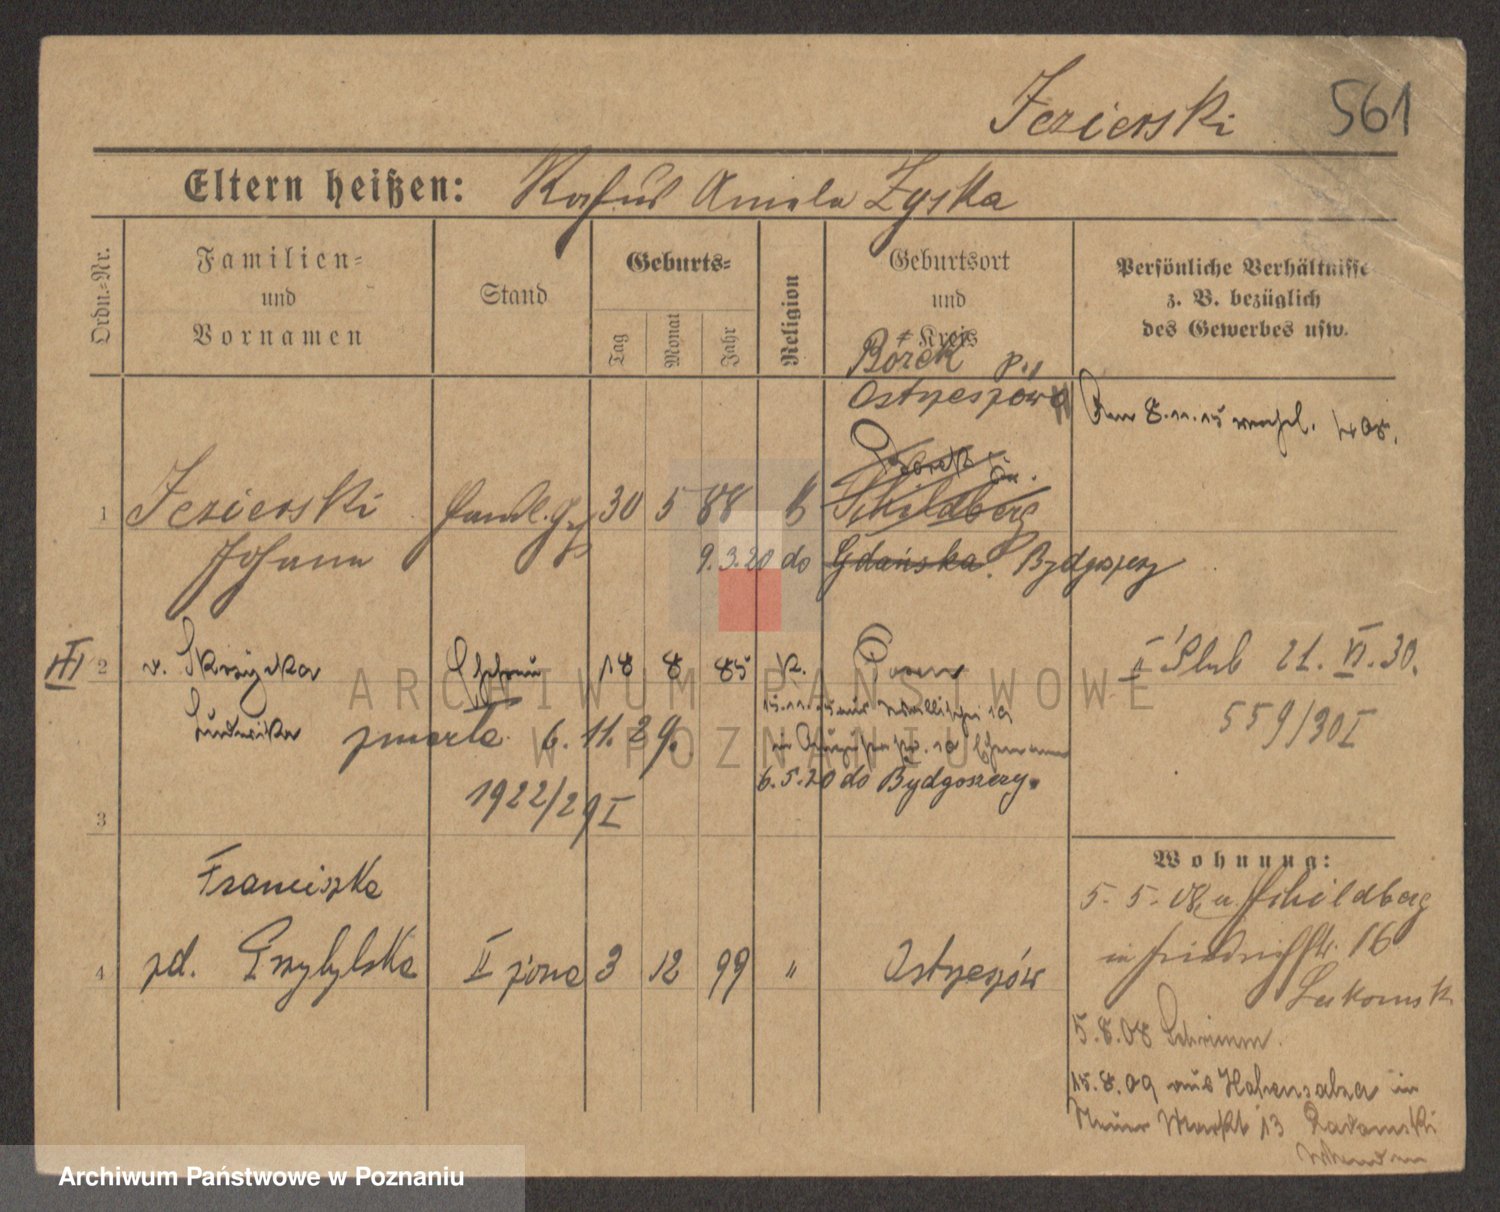 Jezierski 561
Eltern heißen: Amala Zyska
Ordn.-Nr.
Familien-
und
Vornamen
Stand
Geburts-
Tag
Monat
Jahr
Religion
Geburtsort
und
Kreis
Persönliche Verhältnisse
z. B. bezüglich
des Gewerbes usw.
Borek p.
Ostrzeszów
8.11.15
1 Jezierski 30 5 88 k Schildberg
Johann
9.3.20 do Gdańska. Bydgoszcz
III 2 v. Skrzypka Ehefrau 18 8 85 k. Posen
Ludwika zmarła 6.11.29.
1922/29 I
6.5.20 do Bydgoszczy.
II Ślub 21. VI. 30.
559/30 I
3
Franciszka
4 zd. Przybylska II żona 3 12 99 " Ostrzeszów
Wohnung:
5. 5. 08 u. Schildberg
in Friedrichstr. 16
Lukomsk
5.8.08 Schrimm.
15.8.09 aus Hohensalza in
Neuer Markt 13 Radomski
ARCHIWUM PAŃSTWOWE
W POZNANIU
Archiwum Państwowe w Poznaniu